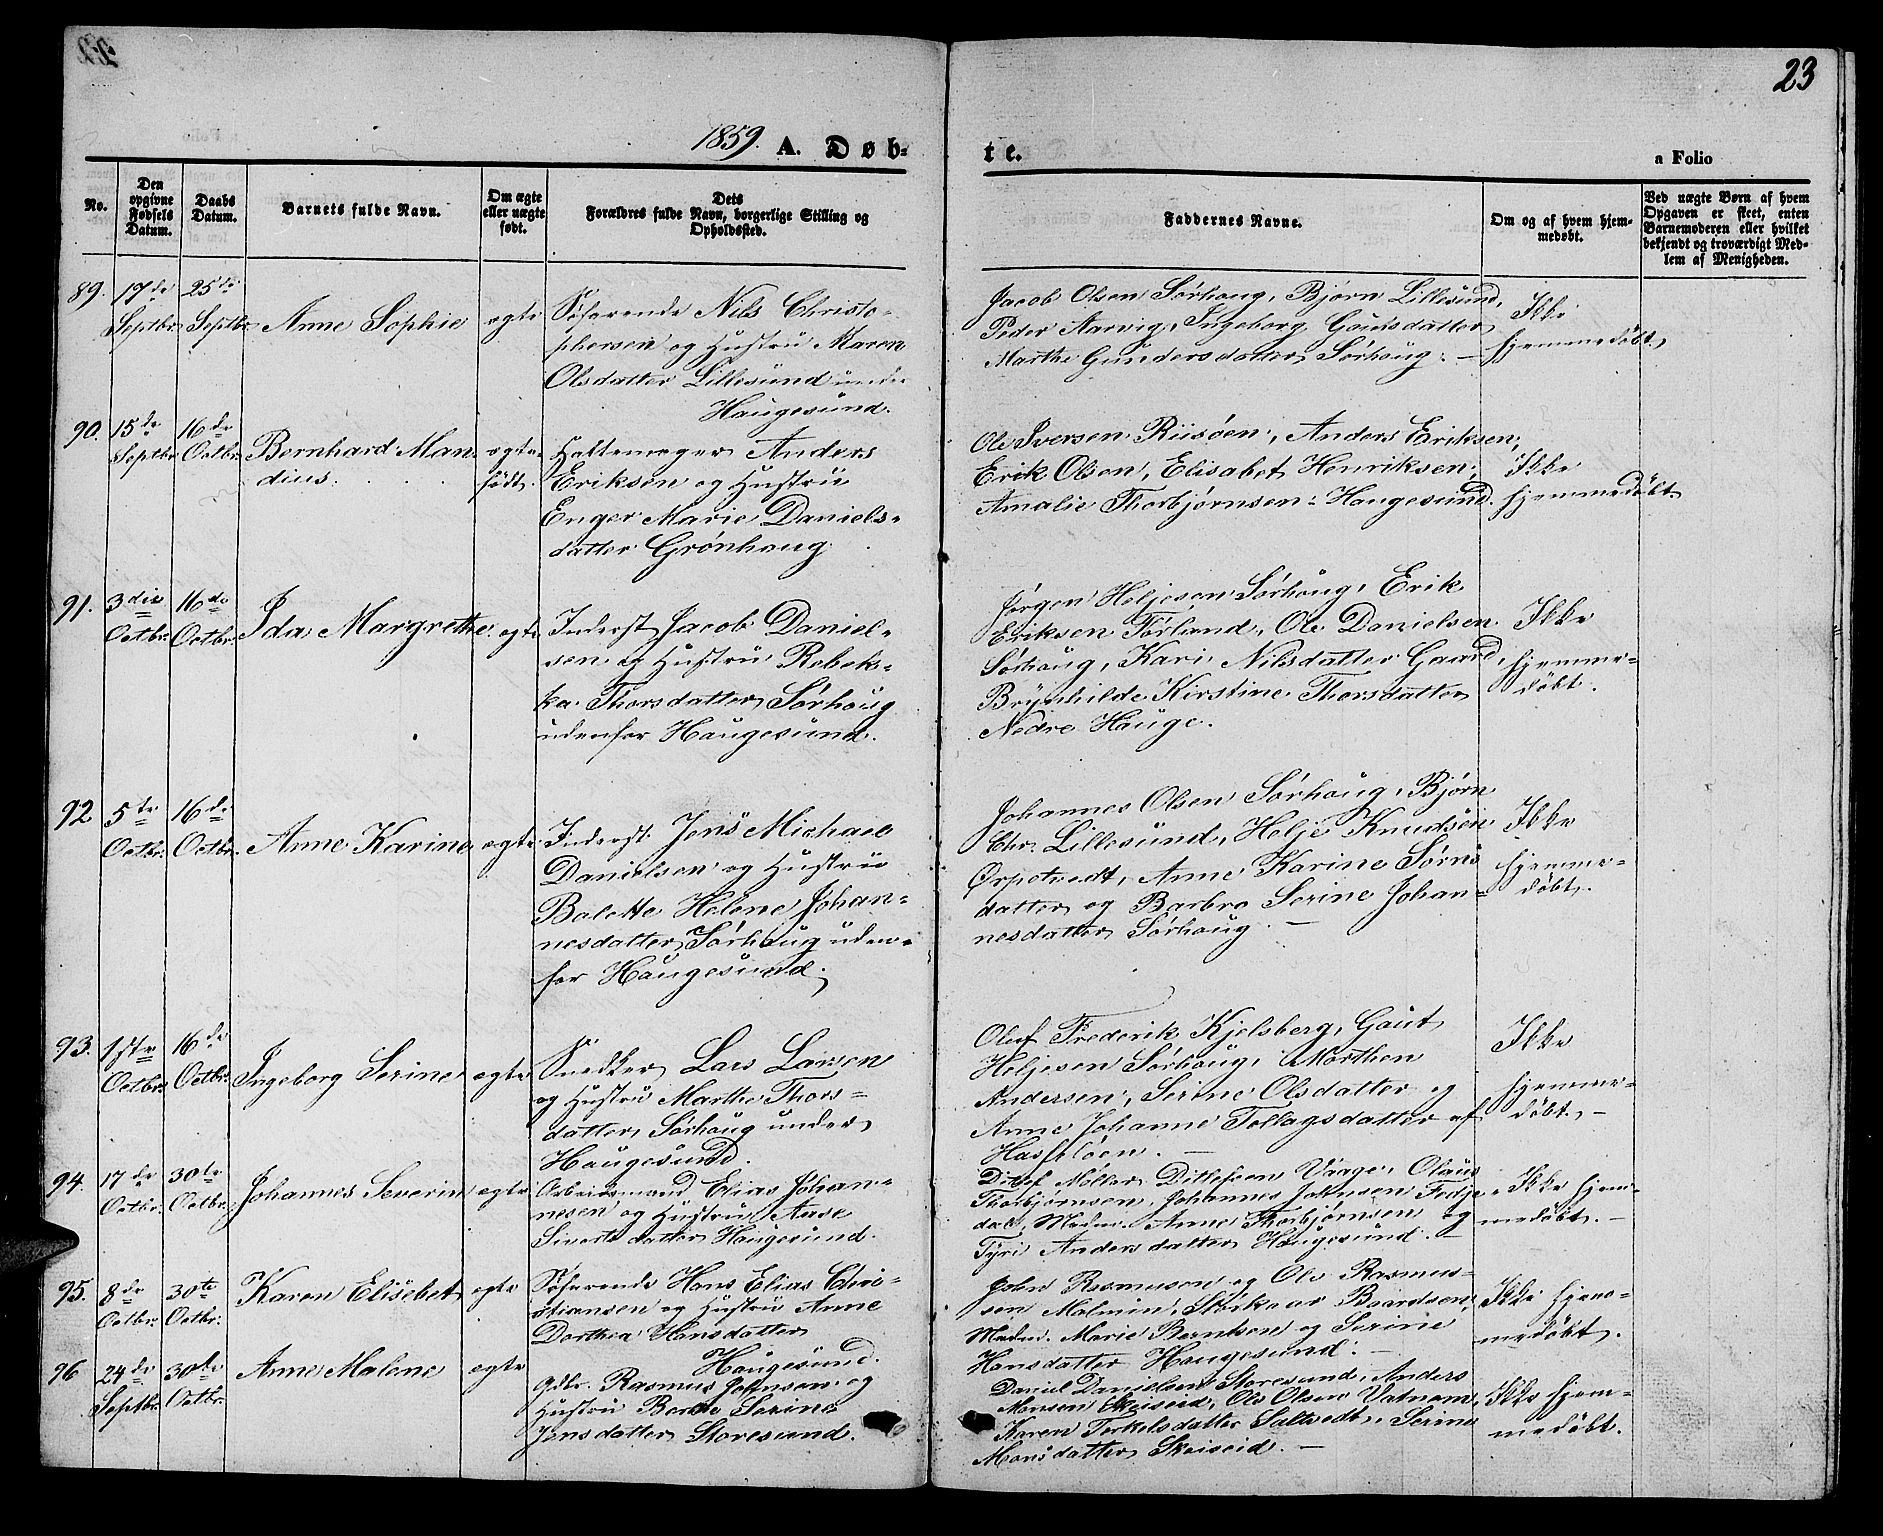 23
1859. A. Døb-
te.
a Folio
No.
Den opgivne Fødsels Datum.
Daabs Datum.
Barnets fulde Navn.
Om ægte eller uægte født.
Dets Forældres fulde Navn, borgerlige Stilling og Opholdssted.
Faddernes Navne.
Om og af hvem hjemmedøbt.
Ved uægte Børn af hvem Opgaven er skeet, enten Barnemoderen eller hvilket bekjendt og troværdigt Medlem af Menigheden.
89.
17de
Septbr.
25de
Septbr.
Anne Sophie
ægte
Søfarende Nils Christo-
phersen og Hustrü Maren
Olsdatter Lillesünd under
Haugesünd.
Jacob Olsen Sørhaug, Bjørn Lillesünd,
Peder Aarvig, Ingeborg Gautsdatter
Marthe Gündersdatter Sørhaug. —
Ikke
hjemmedøbt
90.
15de
Septbr.
16de
Octbr.
Bernhard Man-
dius.
ægte
født.
Hattemager Anders
Eriksen og Hustrü
Enger Marie Daniels-
datter Grønhaug
Ole Iversen Riisøen, Anders Eriksen,
Erik Olsen, Elisabet Henriksen,
Amalie Thorbjørnsen: Haugesund.
Ikke
hjemmedøbt
91.
3die
Octbr.
16de
Octbr.
Ida Margrethe
ægte
Inderst Jacob Daniel-
sen og Hustrü Rebek-
ka Thorsdatter Sørhoug
udenfor Haugesund.
Jørgen Heljesen Sørhaug, Erik
Eriksen Førland, Ole Danielsen
Sørhaug, Kari Nilsdatter Gaard,
Brynhilde Kirstine Thorsdatter
Nedre Hauge.
Ikke
hjemme-
døbt.
92
5te
Octbr.
16de
Octbr.
Anne Karine
ægte
Inderst Jens Michael
Danielsen og Hustrü
Bolette Helene Johan-
nesdatter Sørhaug uden-
for Haugesund.
Johannes Olsen Sørhaug, Bjørn
Chr. Lillesünd, Helje Knudsen
Ørpetvedt, Anne Karine Sørns
datter og Barbro Serine Johan-
nesdatter Sørhoug. —
Ikke
hjemme-
døbt.
93.
1ste
Octbr.
16de
Octbr.
Ingeborg Serine
ægte
Snedker Lars Larsen
og Hustrü Marthe Thors-
datter Sørhoug under
Haugesund.
Oluf Frederik Kjelsberg, Gaut
Heljesen Sørhaug, Morthen
Andersen, Serine Olsdatter og
Anne Johanne Tollagsdatter af
Hasseløen. —
Ikke
hjemme-
døbt. —
94.
17de
Octbr.
30te
Octbr.
Johannes Severin
ægte
Arbeidsmand Elias Johan-
nesen og Hustrü Anse
Sivertsdatter Haugesund.
Ditlef Møller Ditlefsen Vaage, Olaus
Thorbjørnsen, Johannes Johnsen Fedje-
dal, Madm. Anne Thorbjørnsen og
Tyri Andersdatter Haugesund. —
Ikke hjem-
medøbt. —
95.
8de
Octbr.
30te
Octbr.
Karen Elisebet
ægte
Søfarende Hans Elias Chri-
stiansen og Hustrü Anne
Dorthea Hansdatter
Haugesund.
John Rasmusen og Ole Rasmus-
sen Malmin, Størkaar Baardsen,
Madm. Marie Berntsen og Serine
Hansdatter Haugesund. —
Ikke hjem-
medøbt.
96
24de
Septbr.
30te
Octbr.
Anne Malene
ægte
Gdbr. Rasmus Johnsen og
Hustru Berthe Serine
Jensdatter Storesund.
Daniel Danielsen Storesund, Anders
Monsen Skeiseid, Ole Olsen Vatnem,
Karen Terkelsdatter Saltvedt, Serine
Monsdatter Skeiseid. —
Ikke hjem-
medøbt.